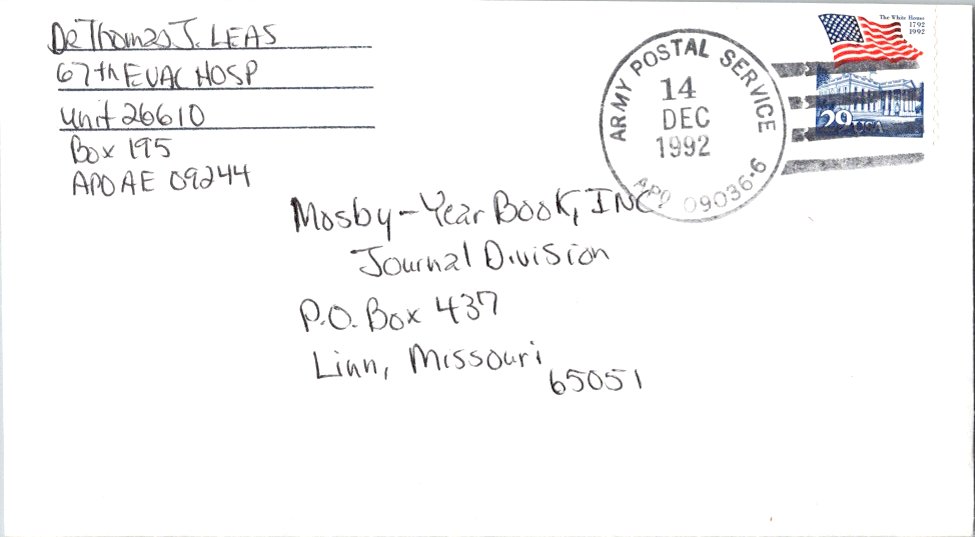 Dr Thomas J. LEAS
67th EVAC HOSP
Unit 26610
Box 195
APO AE 09244
ARMY POSTAL SERVICE
14
DEC
1992
APO 09036-6
The White House
1792
1992
29
USA
Mosby-Year Book, INC
Journal Division
P.O. Box 437
Linn, Missouri
65051